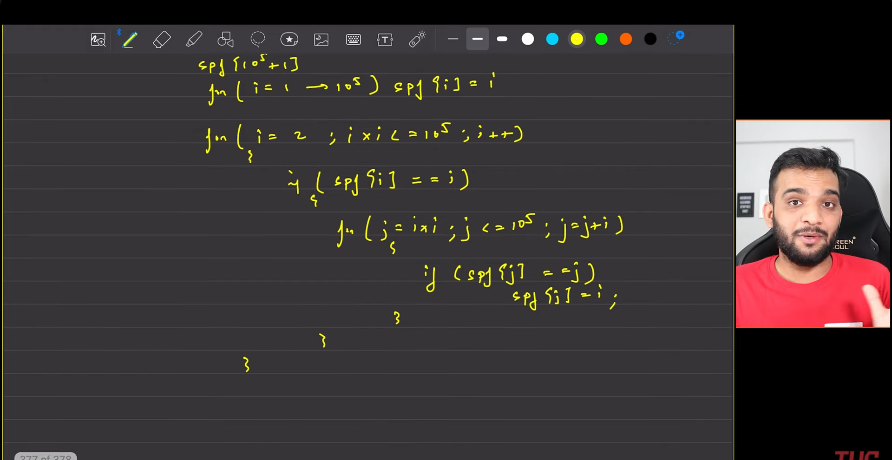 spf[10^5+1]
for( i=1 → 10^5) spf[i] = i
for( i=2 ; i×i <= 10^5 ; i++)
{
if ( spf[i] == i)
{
for( j = i×i ; j <= 10^5 ; j=j+i)
{
if (spf[j] == j)
spf[j] = i ;
}
}
}
377 of 378